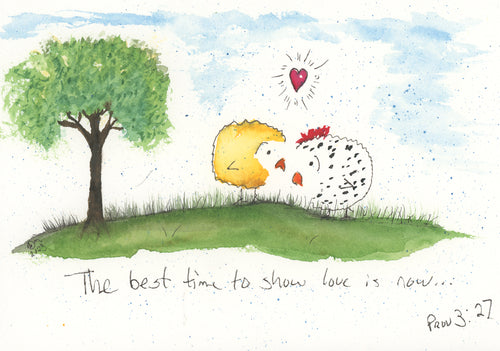 The best time to show love is now...
Prov 3:27